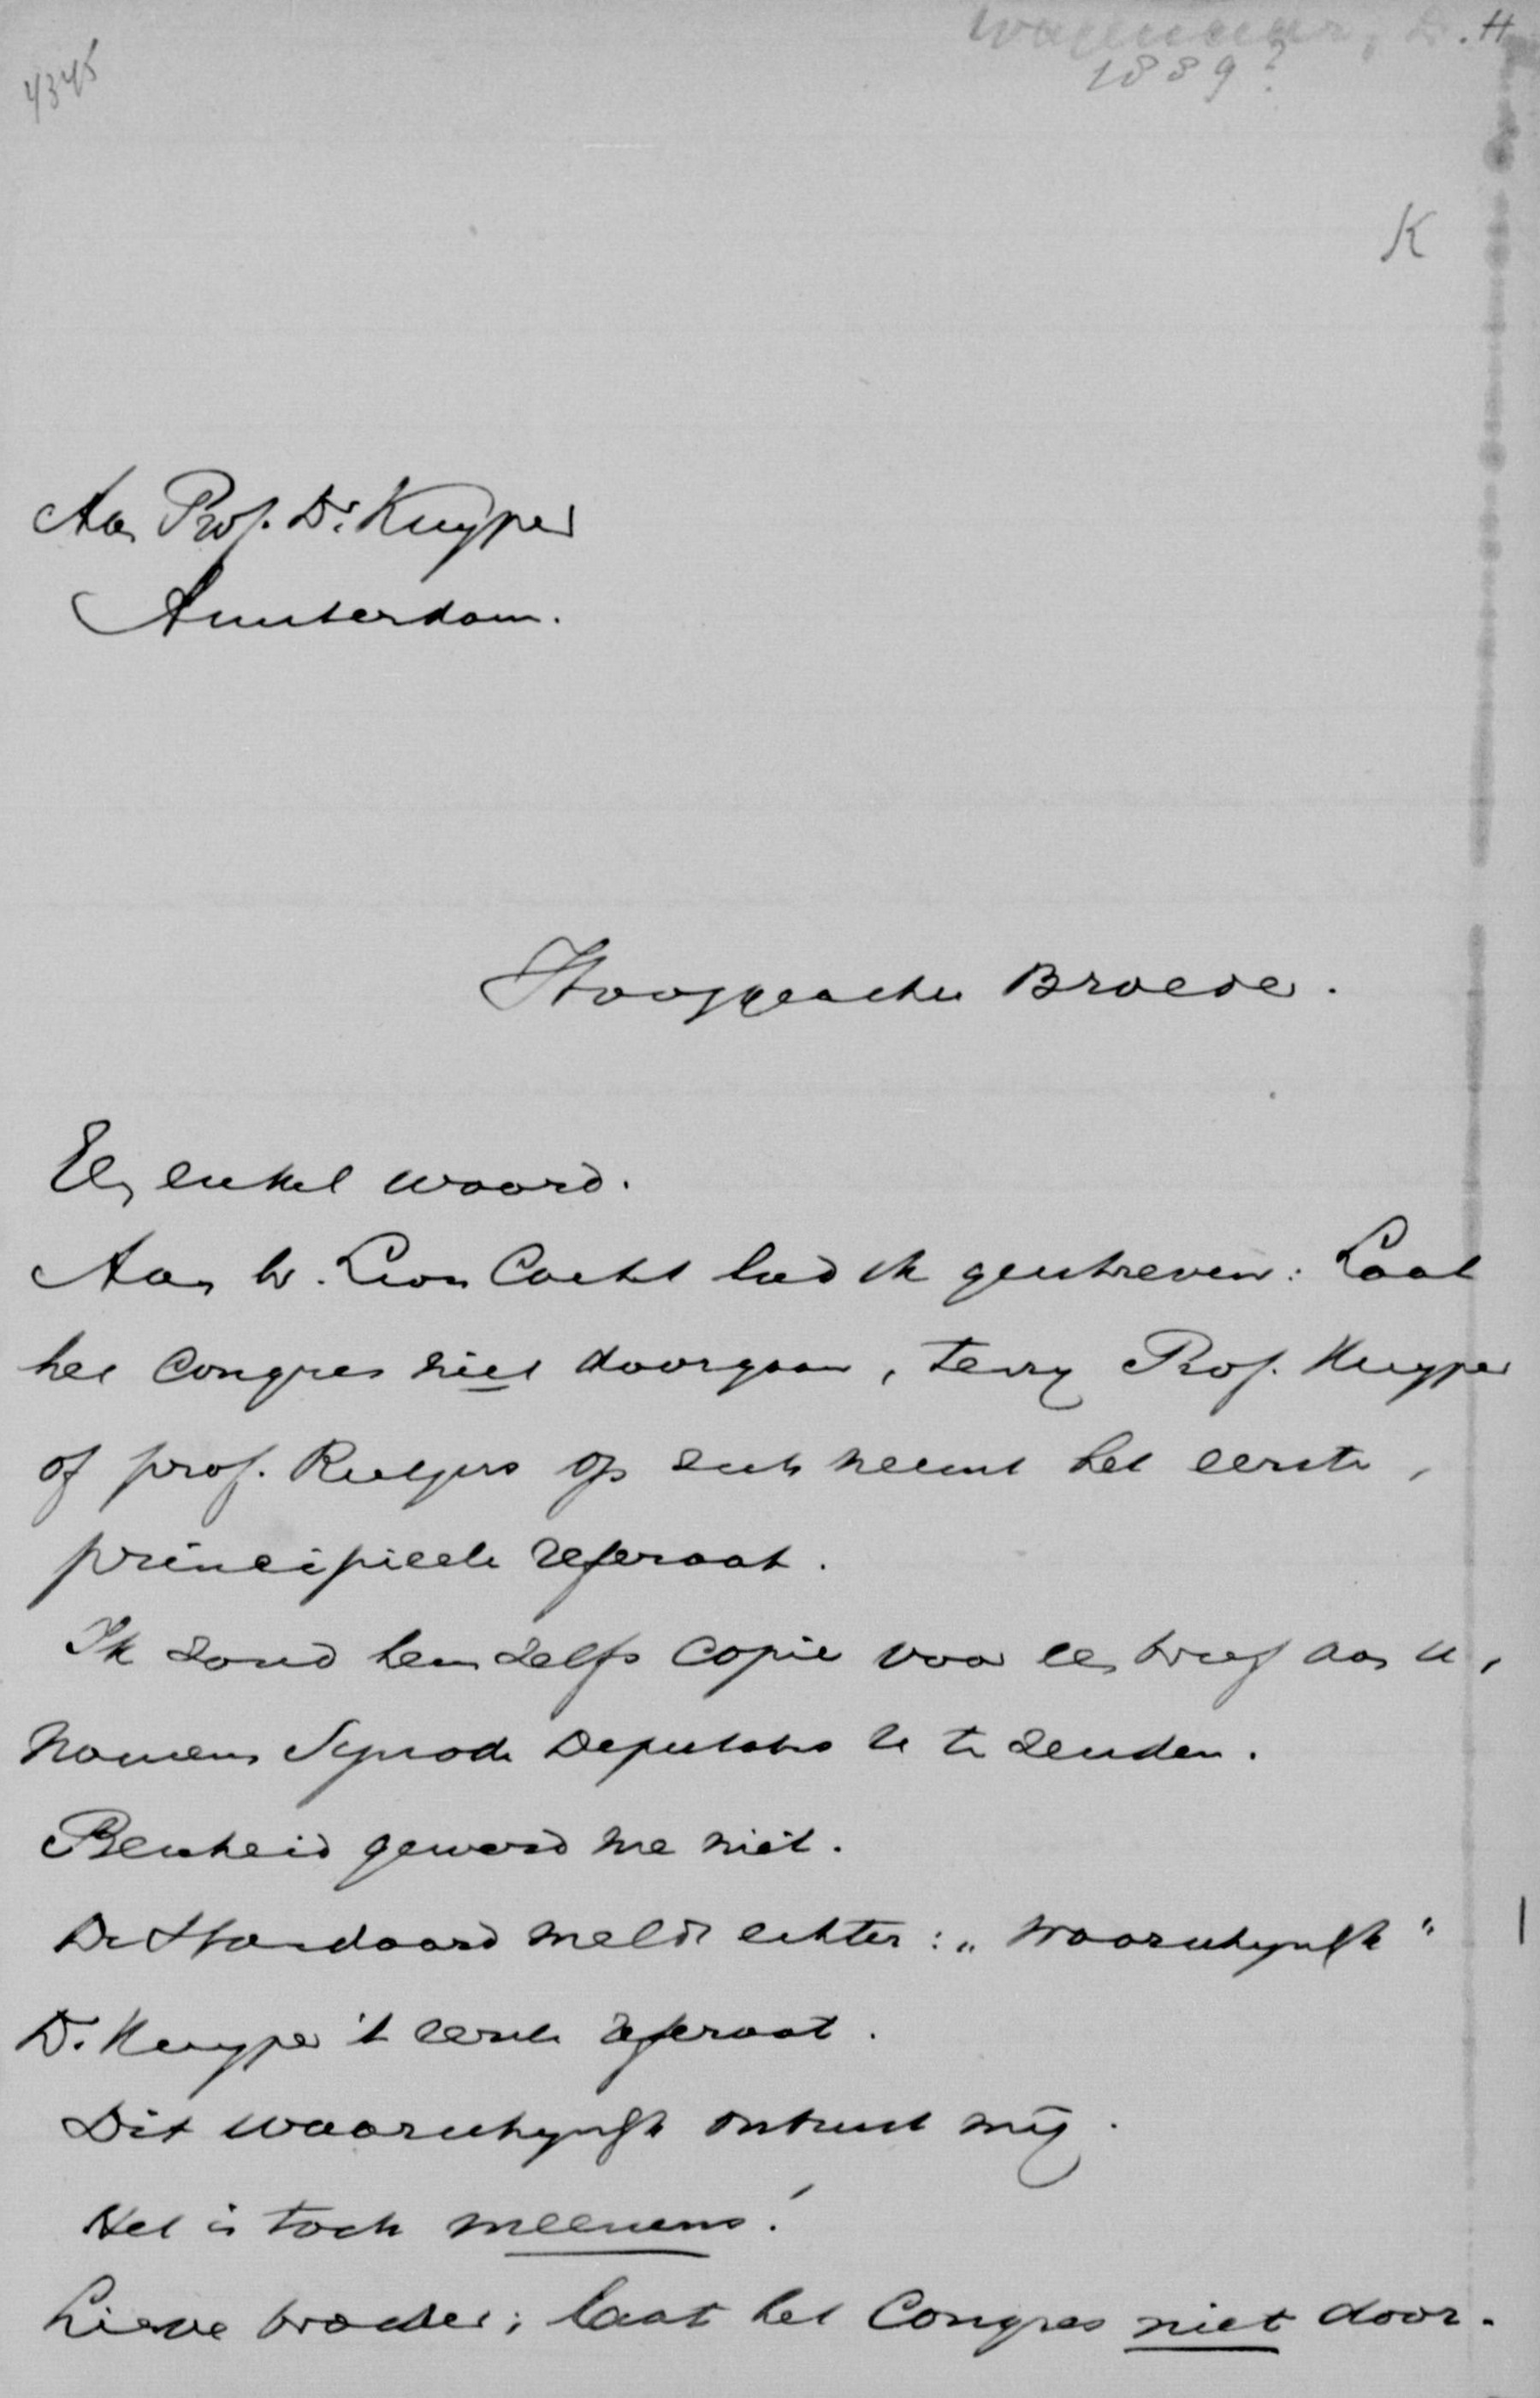 4345
Wagenaar, D. H
1889?
K
Aan Prof. Dr. Kuyper
Amsterdam.
Hooggeachte Broeder.
Een enkel woord.
Aan br. Lion Cachet had ik geschreven: Laat
het Congres niet doorgaan, tenzij Prof. Kuyper
of prof. Rutgers op zich neemt het eerste,
principieele referaat.
Ik zond hem zelfs copie voor een brief aan u,
namens Synode Deputaten u te zenden.
Bescheid geword me niet.
De Standaard meldt echter: „waarschijnlijk"
Dr. Kuyper 't eerste referaat.
Dit waarschijnlijk ontrust mij.
Het is toch meenens!
Lieve broeder; laat het Congres niet door-